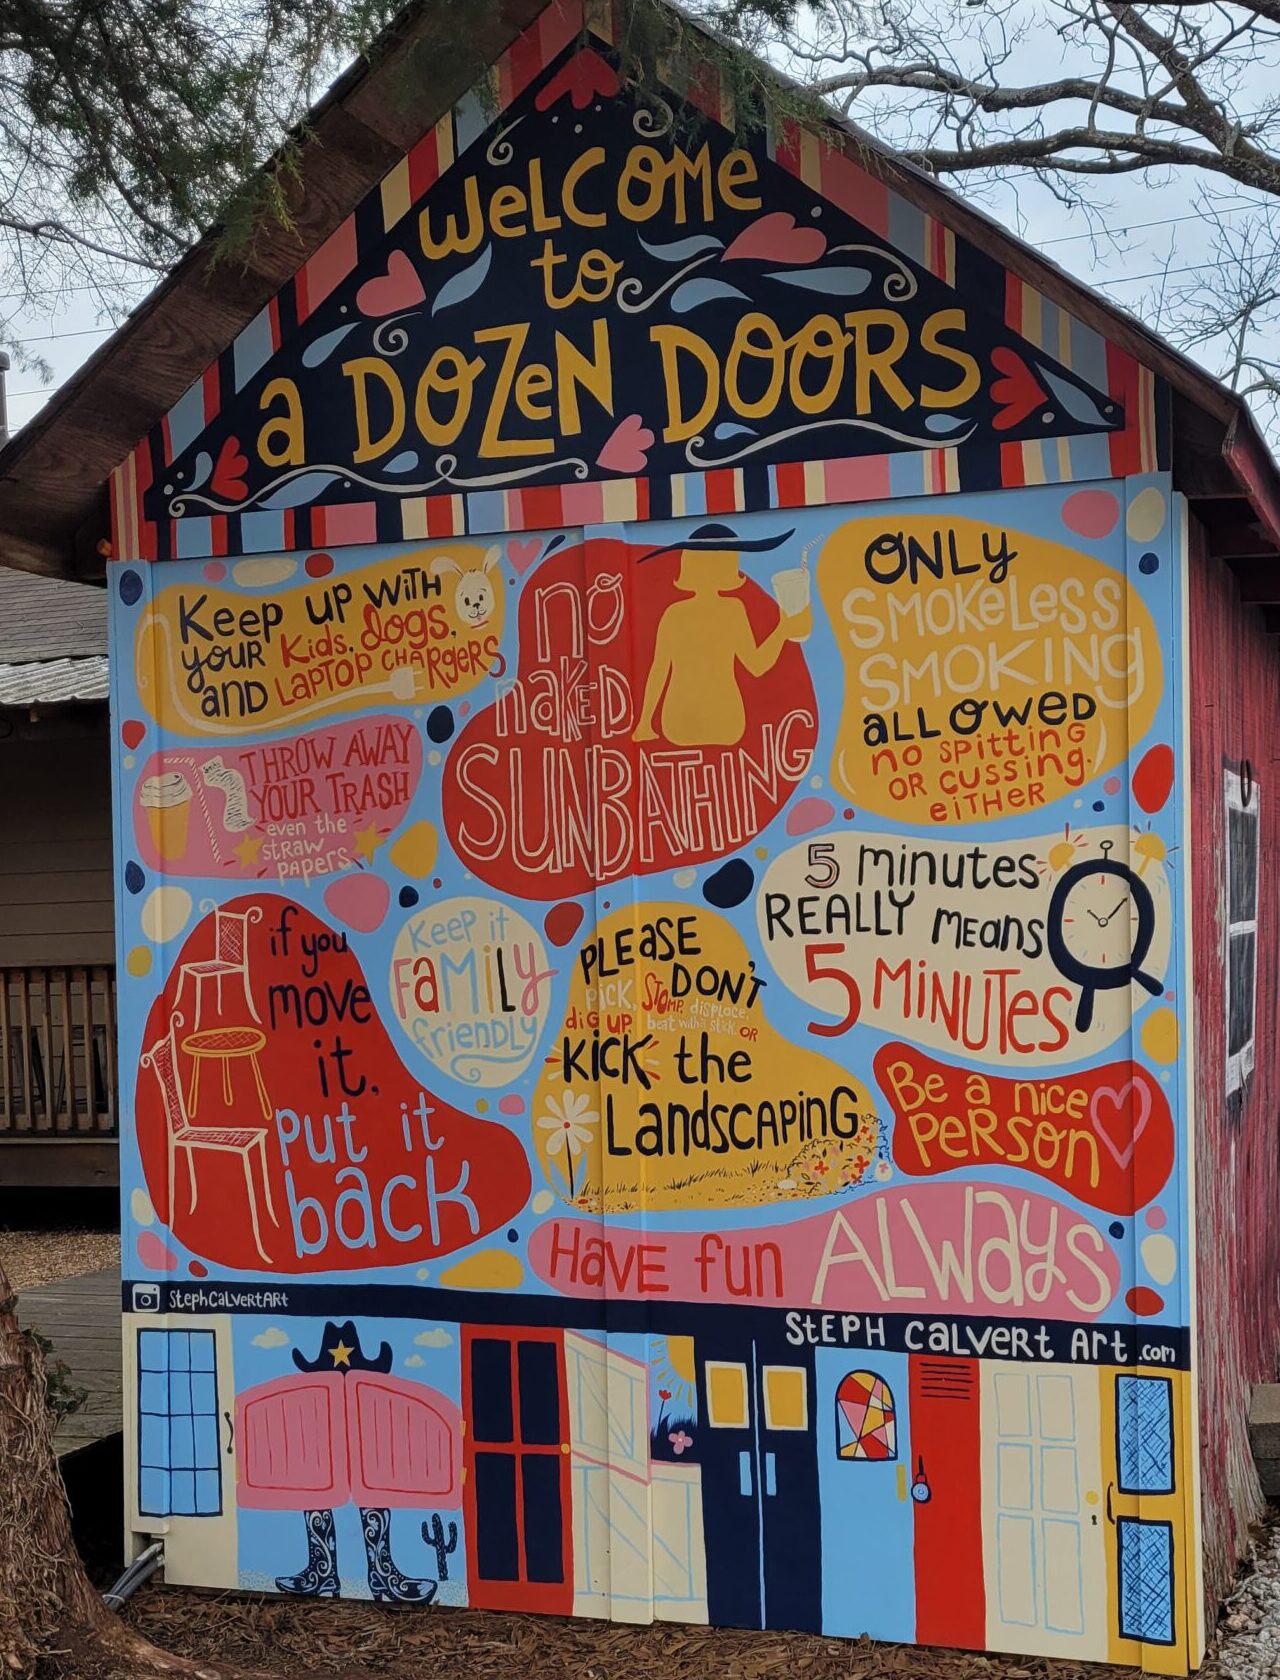 WeLCOMe
to
a DOZeN DOORS
Keep UP WiTH
yOUR Kids, dogs,
AND LAPTOP CHARgeRS
no
naKeD
SUNBATHING
ONLy
SMOKeLeSS
SMOKING
aLLOweD
no SPitting
OR cussing
eiTHER
THROW AWAY
YOUR TRASH
even the
straw
papers
5 minutes
REALLY meANS
5 MiNUTes
if you
move
it,
put it
back
Keep it
FaMiLy
friendly
PLEaSE
DON'T
PiCK, STOMP, displace,
diG UP, beat with a stick OR
KicK the
LandscAPinG
Be a nice
PeRson
HavE fun ALWays
StephCaLvertARt
StEPH CaLVERt ARt.com